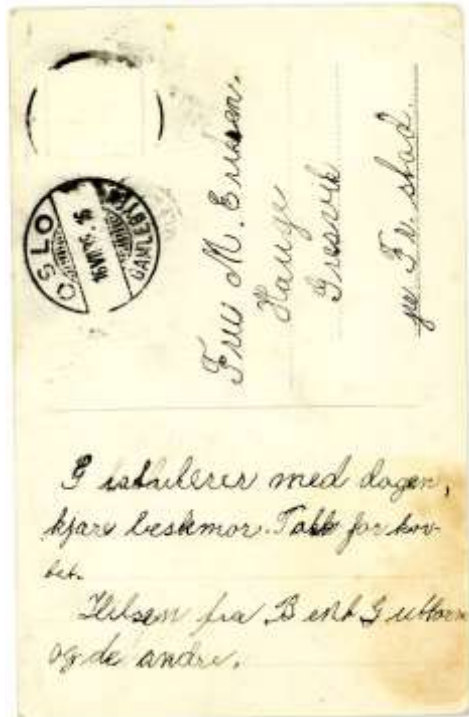 OSLO
GAMLEBYEN
16 VII 26
Fru M. Eriksen.
Hauge
Gressvik
pr Fr. stad.
Gratulerer med dagen,
kjære bestemor. Takk for kor-
tet.
Hilsen fra Bent Guttorm
og de andre.